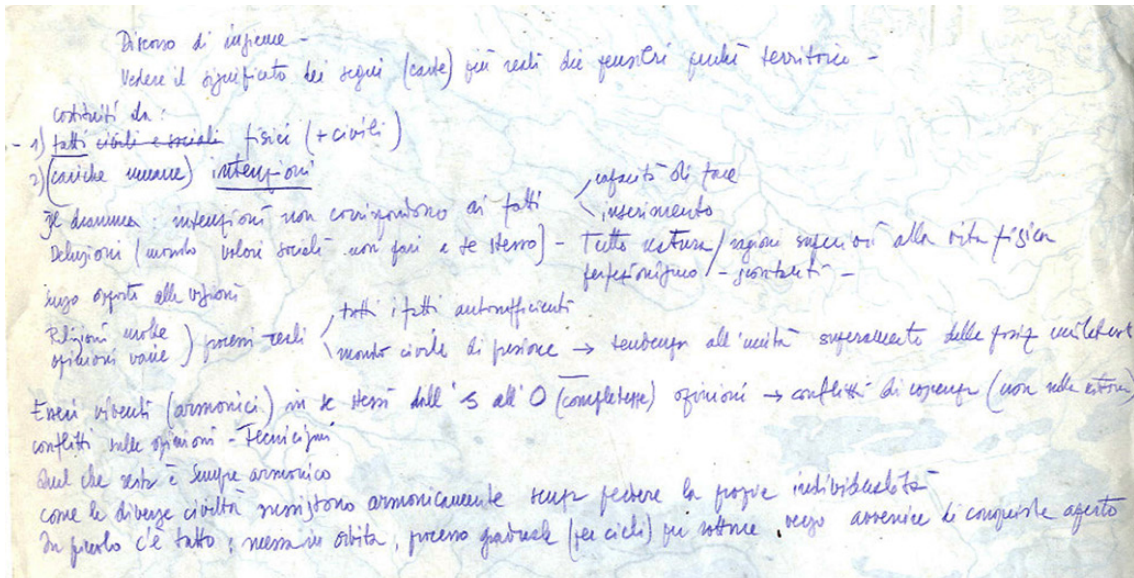 Discorso di insieme -
Vedere il significato dei segni (carte) più reali dei pensieri perché territorio -
costituiti da :
- 1) fatti civili e sociali fisici (+ civili)
2) (cariche umane) intenzioni
Il dramma : intenzioni non corrispondono ai fatti capacità di fare
inserimento
Delusioni (mondo valori sociali non fari a se stesso) - Tutto natura / ragioni superiori alla vita fisica
perfezionismo / - scontenti -
opposti alle
Religioni molte ) processi reali tutti i fatti autosufficienti
opinioni varie mondo civile di → tendenza all'unità superamento delle unilaterali
Esseri viventi (armonici) in se stessi dall' S all' O (completezza) opinioni → conflitti di coscienza (non nella
conflitti sulle opinioni - Tecnicismi
Quel che resta è sempre armonico
come le diverse civiltà sussistono armonicamente senza perdere la propria individualità
In piccolo c'è tutto ; messa in orbita, processo graduale (per cicli) per settore . verso avvenire di conquiste aperto